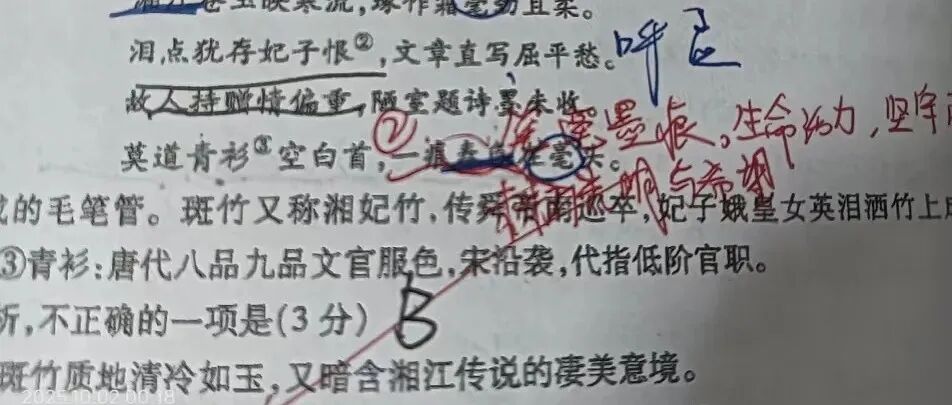 湘江苍玉映寒流,琢作霜毫劲且柔。
泪点犹存妃子恨②,文章直写屈平愁。呼应
故人持赠情偏重,陋室题诗墨未收。
②墨痕。生命活力,坚守
莫道青衫③空白首,一春在毫头。
明与希望
的毛笔管。斑竹又称湘妃竹,传舜帝南巡卒,妃子娥皇女英泪洒竹上
③青衫:唐代八品九品文官服色,宋沿袭,代指低阶官职。
析,不正确的一项是(3分) B
斑竹质地清冷如玉,又暗含湘江传说的凄美意境。
2025.10.02 00:18